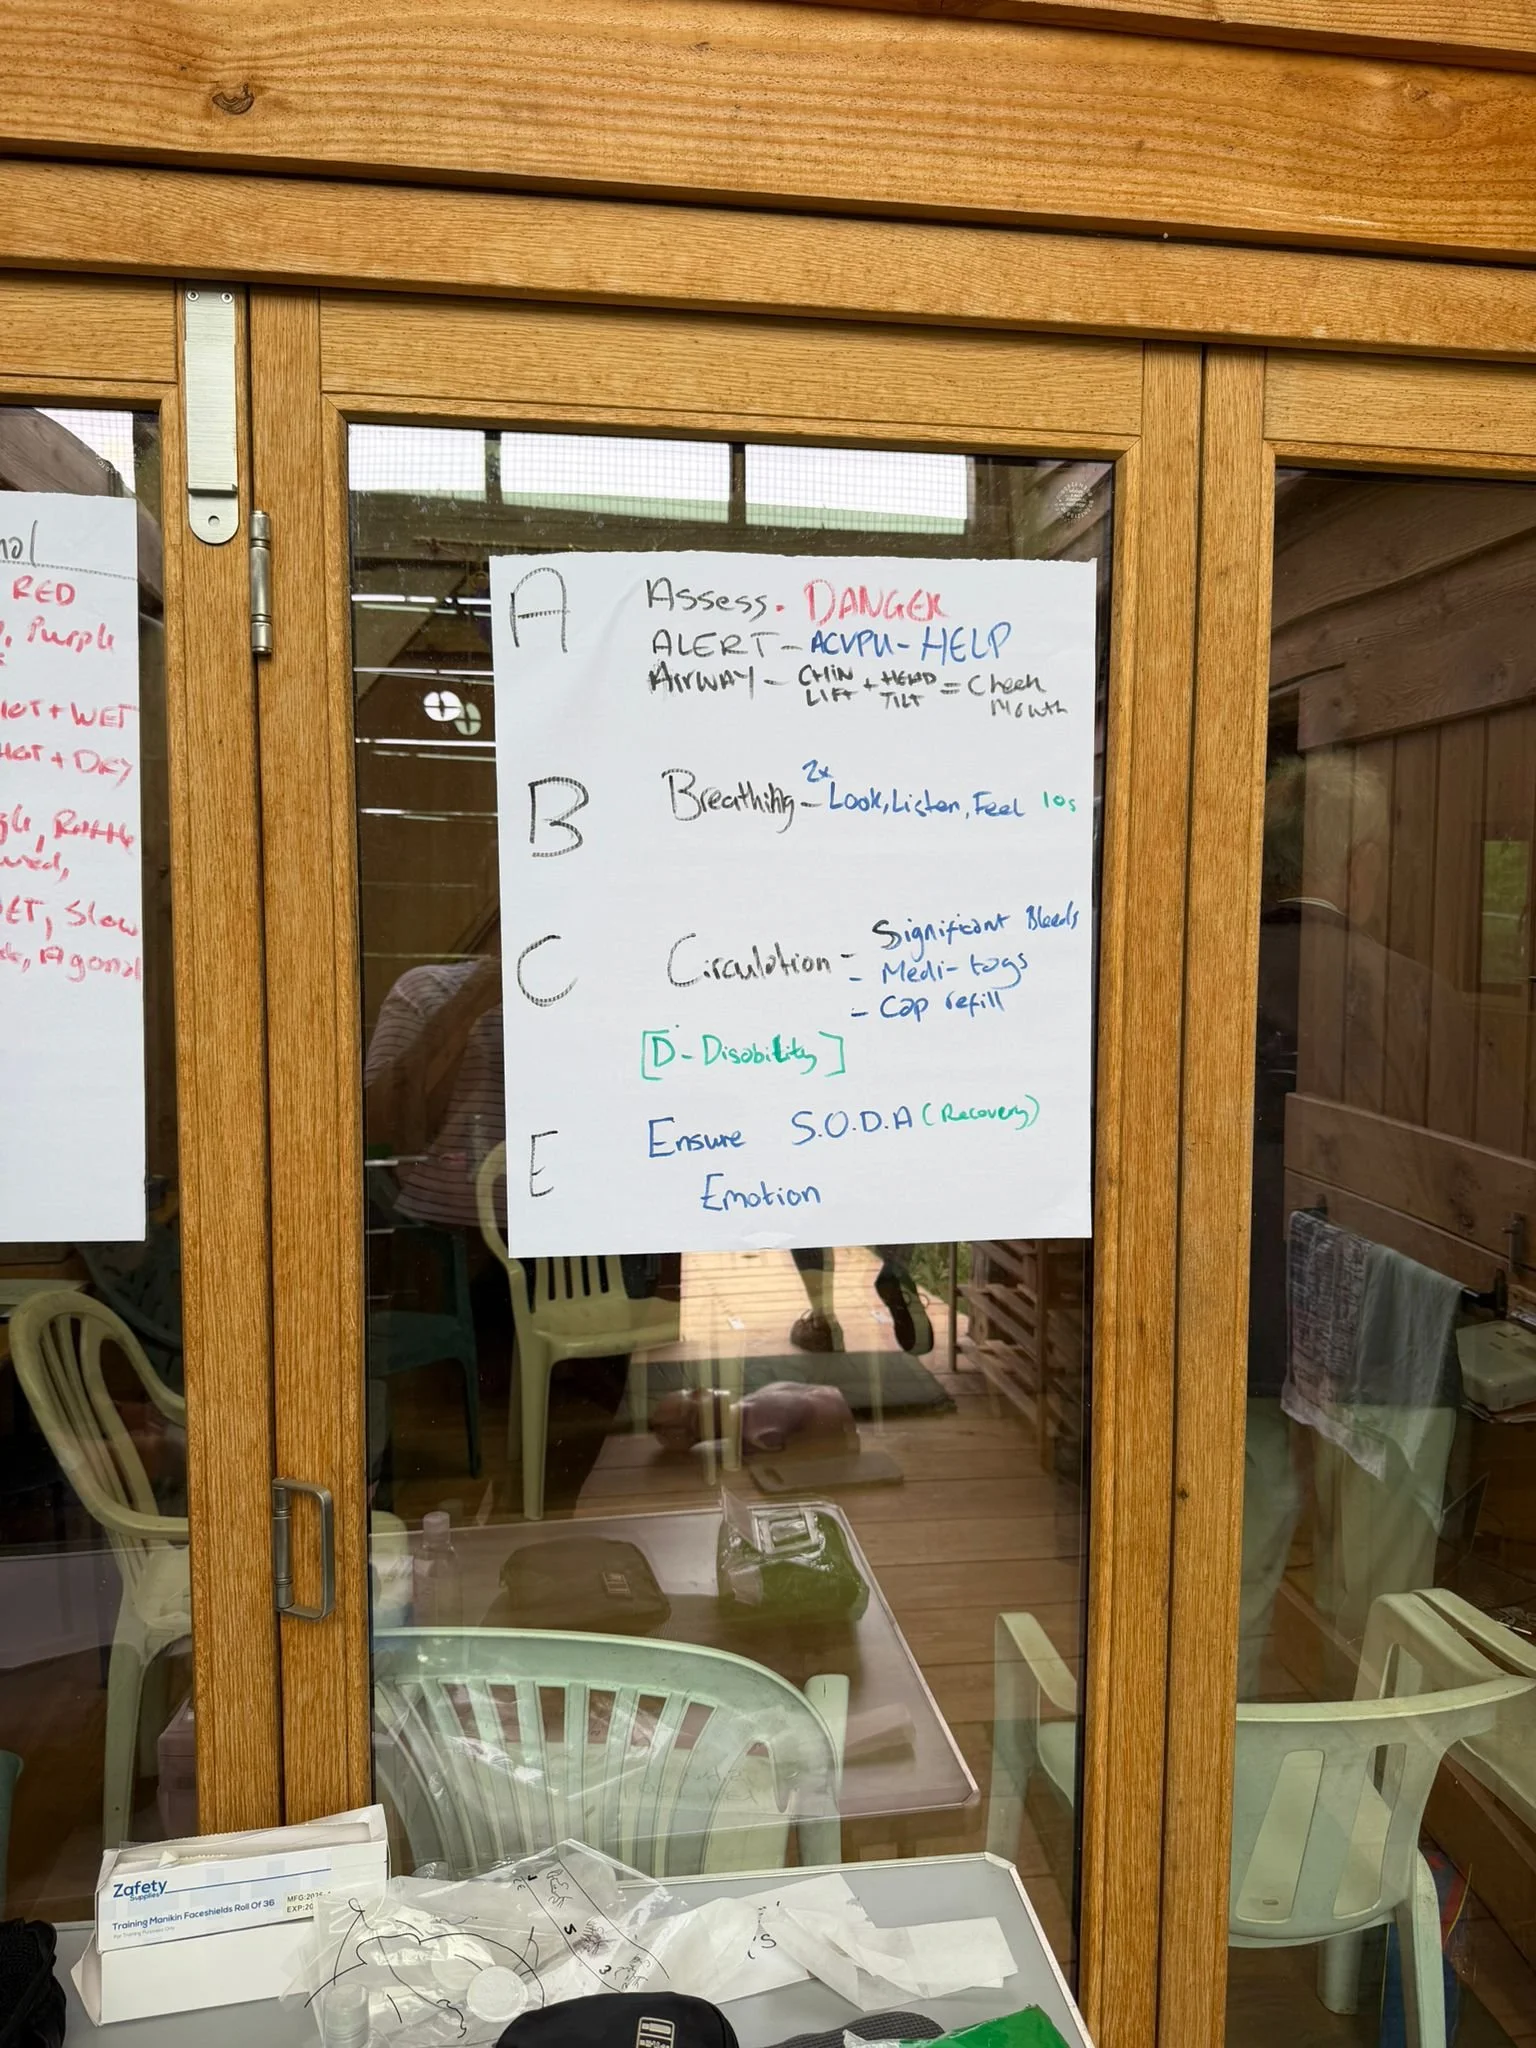 RED
Purple
HOT + WET
HOT + DRY
Rattle
WET, Slow
Agonal
A
Assess. DANGER
ALERT - ACVPU - HELP
AIRWAY - CHIN LIFT + HEAD TILT = Check Mouth
B
Breathing - 2x Look, Listen, Feel 10s
C
Circulation - Significant Bleeds
- Medi-tags
- Cap refill
[D - Disability]
E
Ensure S.O.D.A (Recovery)
Emotion
Zafety
Supplies
Training Manikin Faceshields Roll Of 36
For Training Purposes Only
MFG:
EXP: